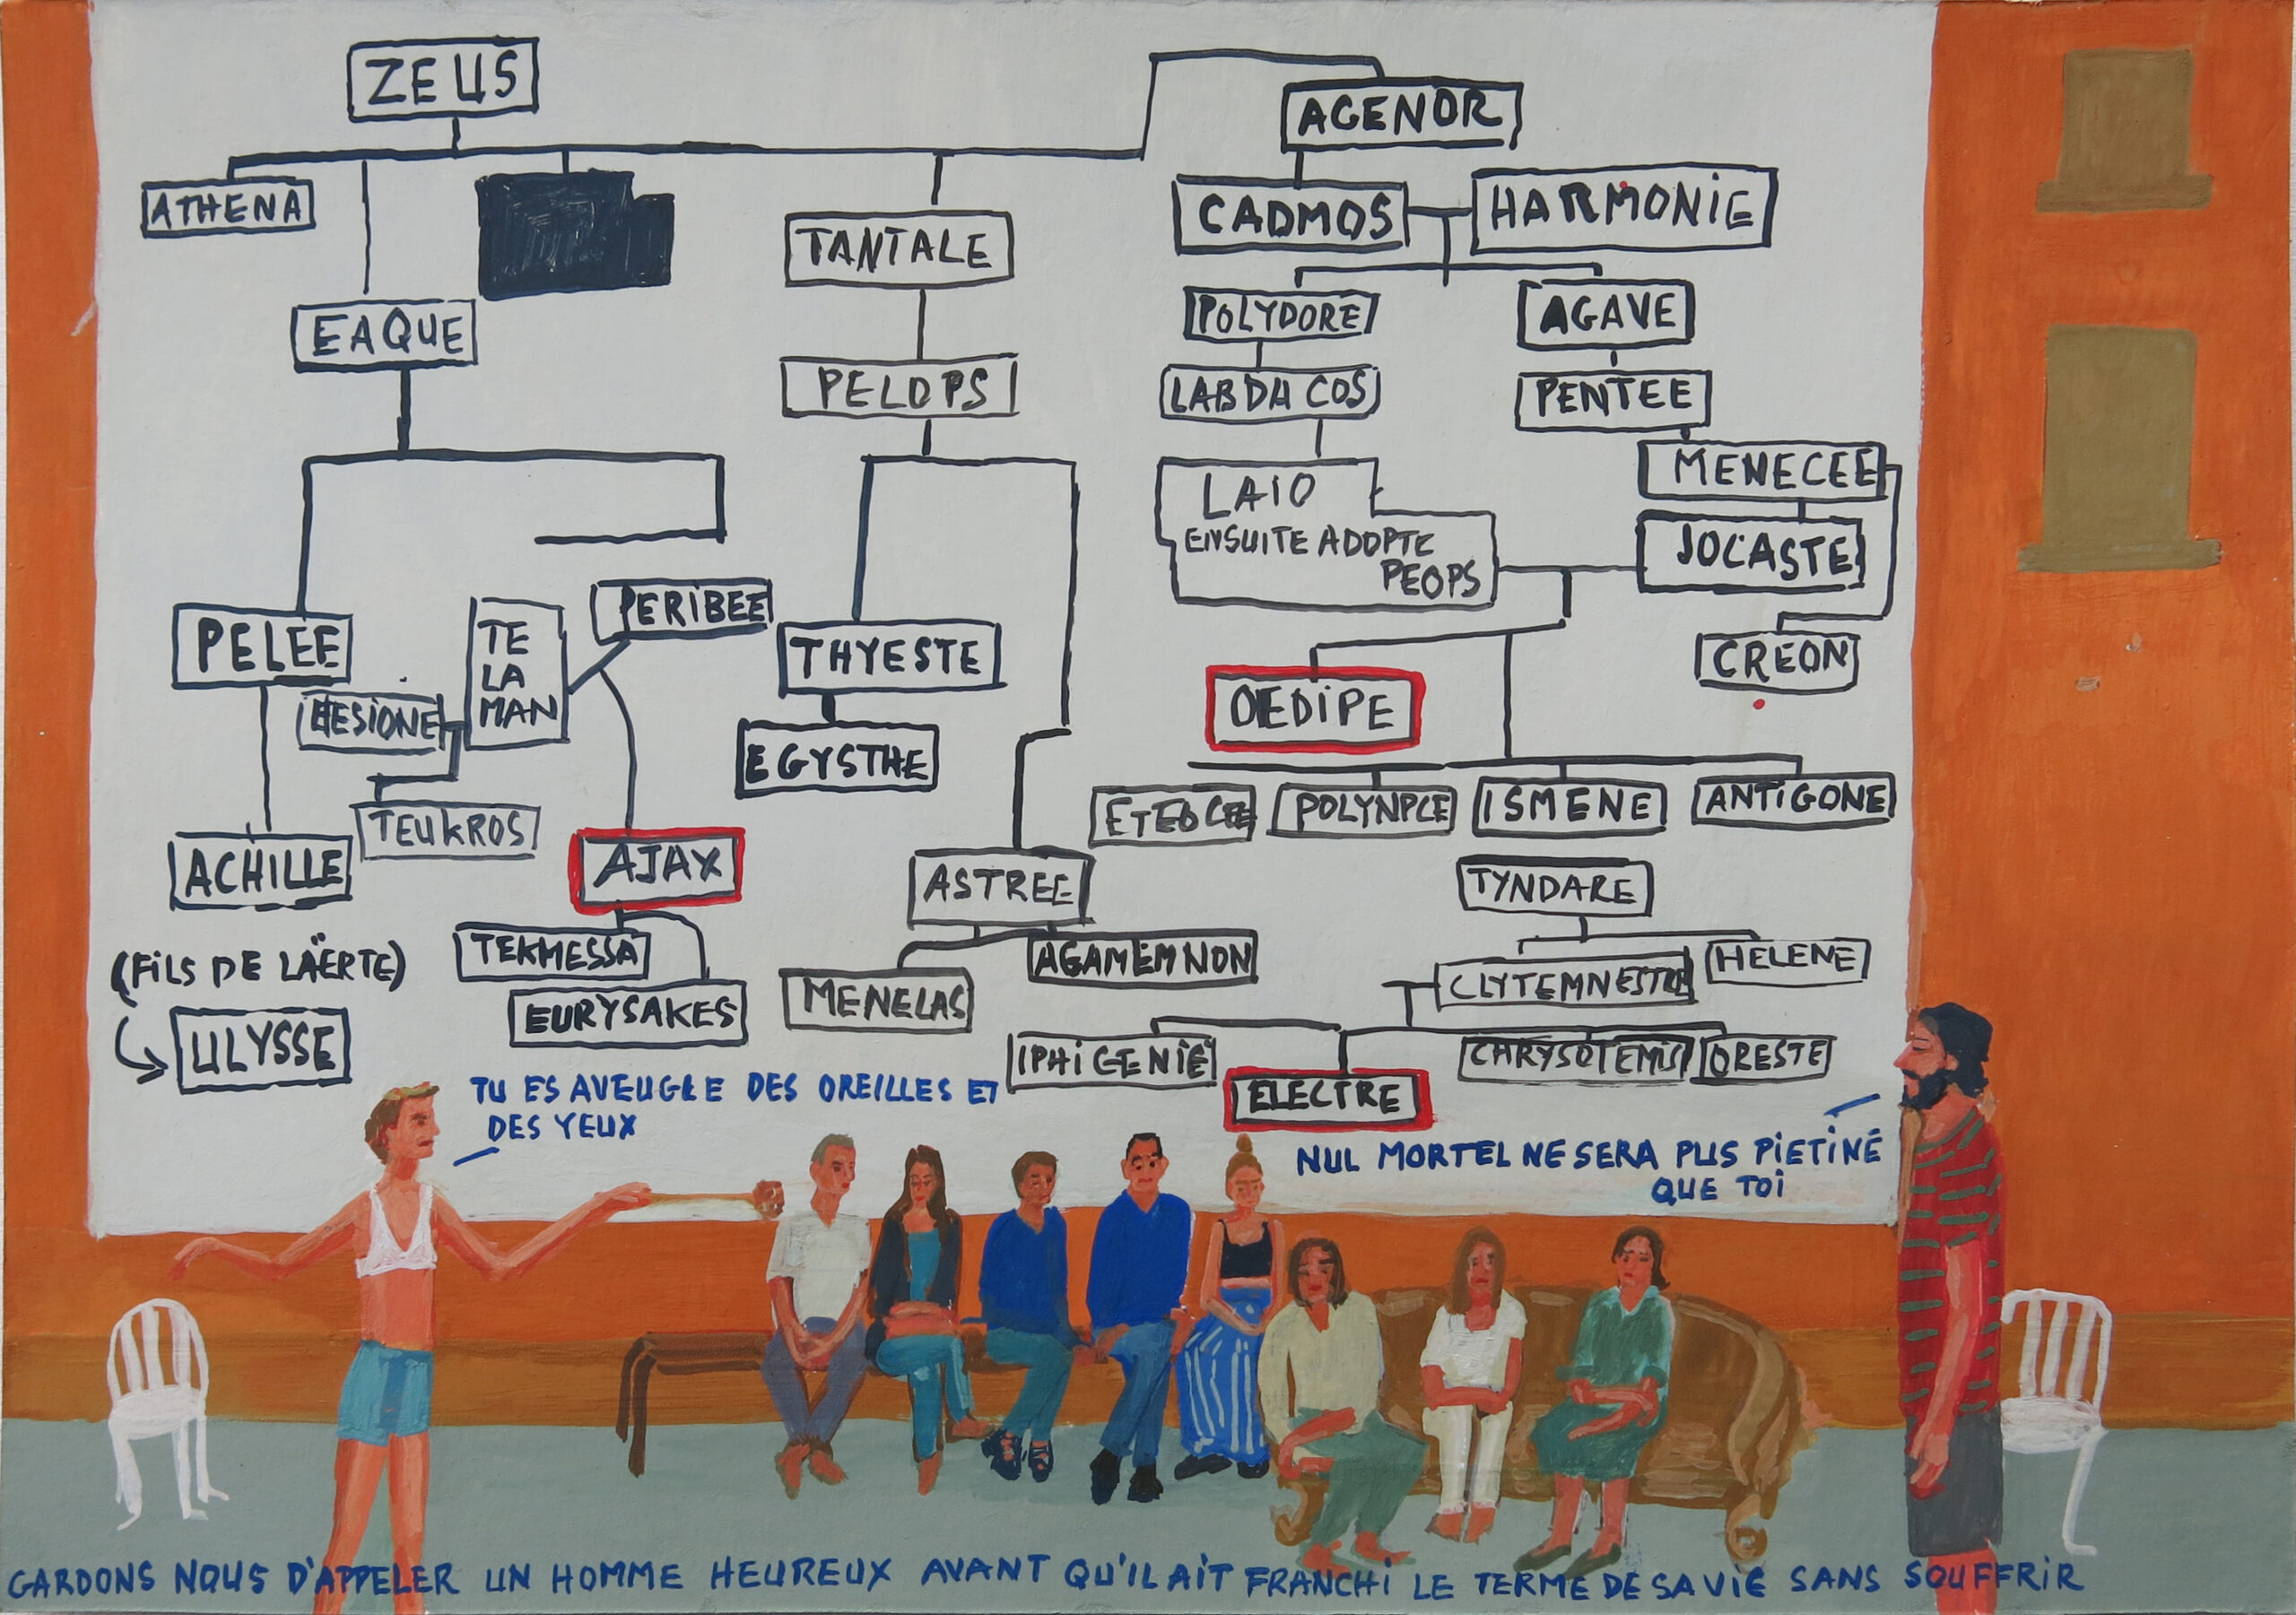 ZEUS
AGENOR
ATHENA
TANTALE
CADMOS
HARMONIE
EAQUE
POLYDORE
AGAVE
PELOPS
LABDACOS
PENTEE
MENECEE
LAIO
ENSUITE ADOPTE
PEOPS
JOCASTE
PELEE
TE
LA
MAN
PERIBEE
THYESTE
CREON
HESIONE
OEDIPE
EGYSTHE
TEUKROS
ETEOCLE
POLYNPCE
ISMENE
ANTIGONE
ACHILLE
AJAX
ASTREE
TYNDARE
(FILS DE LAËRTE)
TEKMESSA
AGAMEMNON
CLYTEMNESTRE
HELENE
ULYSSE
EURYSAKES
MENELAS
IPHIGENIE
CHRYSOTEMIS
ORESTE
ELECTRE
TU ES AVEUGLE DES OREILLES ET
DES YEUX
NUL MORTEL NE SERA PLUS PIETINÉ
QUE TOI
GARDONS NOUS D'APPELER UN HOMME HEUREUX AVANT QU'IL AIT FRANCHI LE TERME DE SA VIE SANS SOUFFRIR